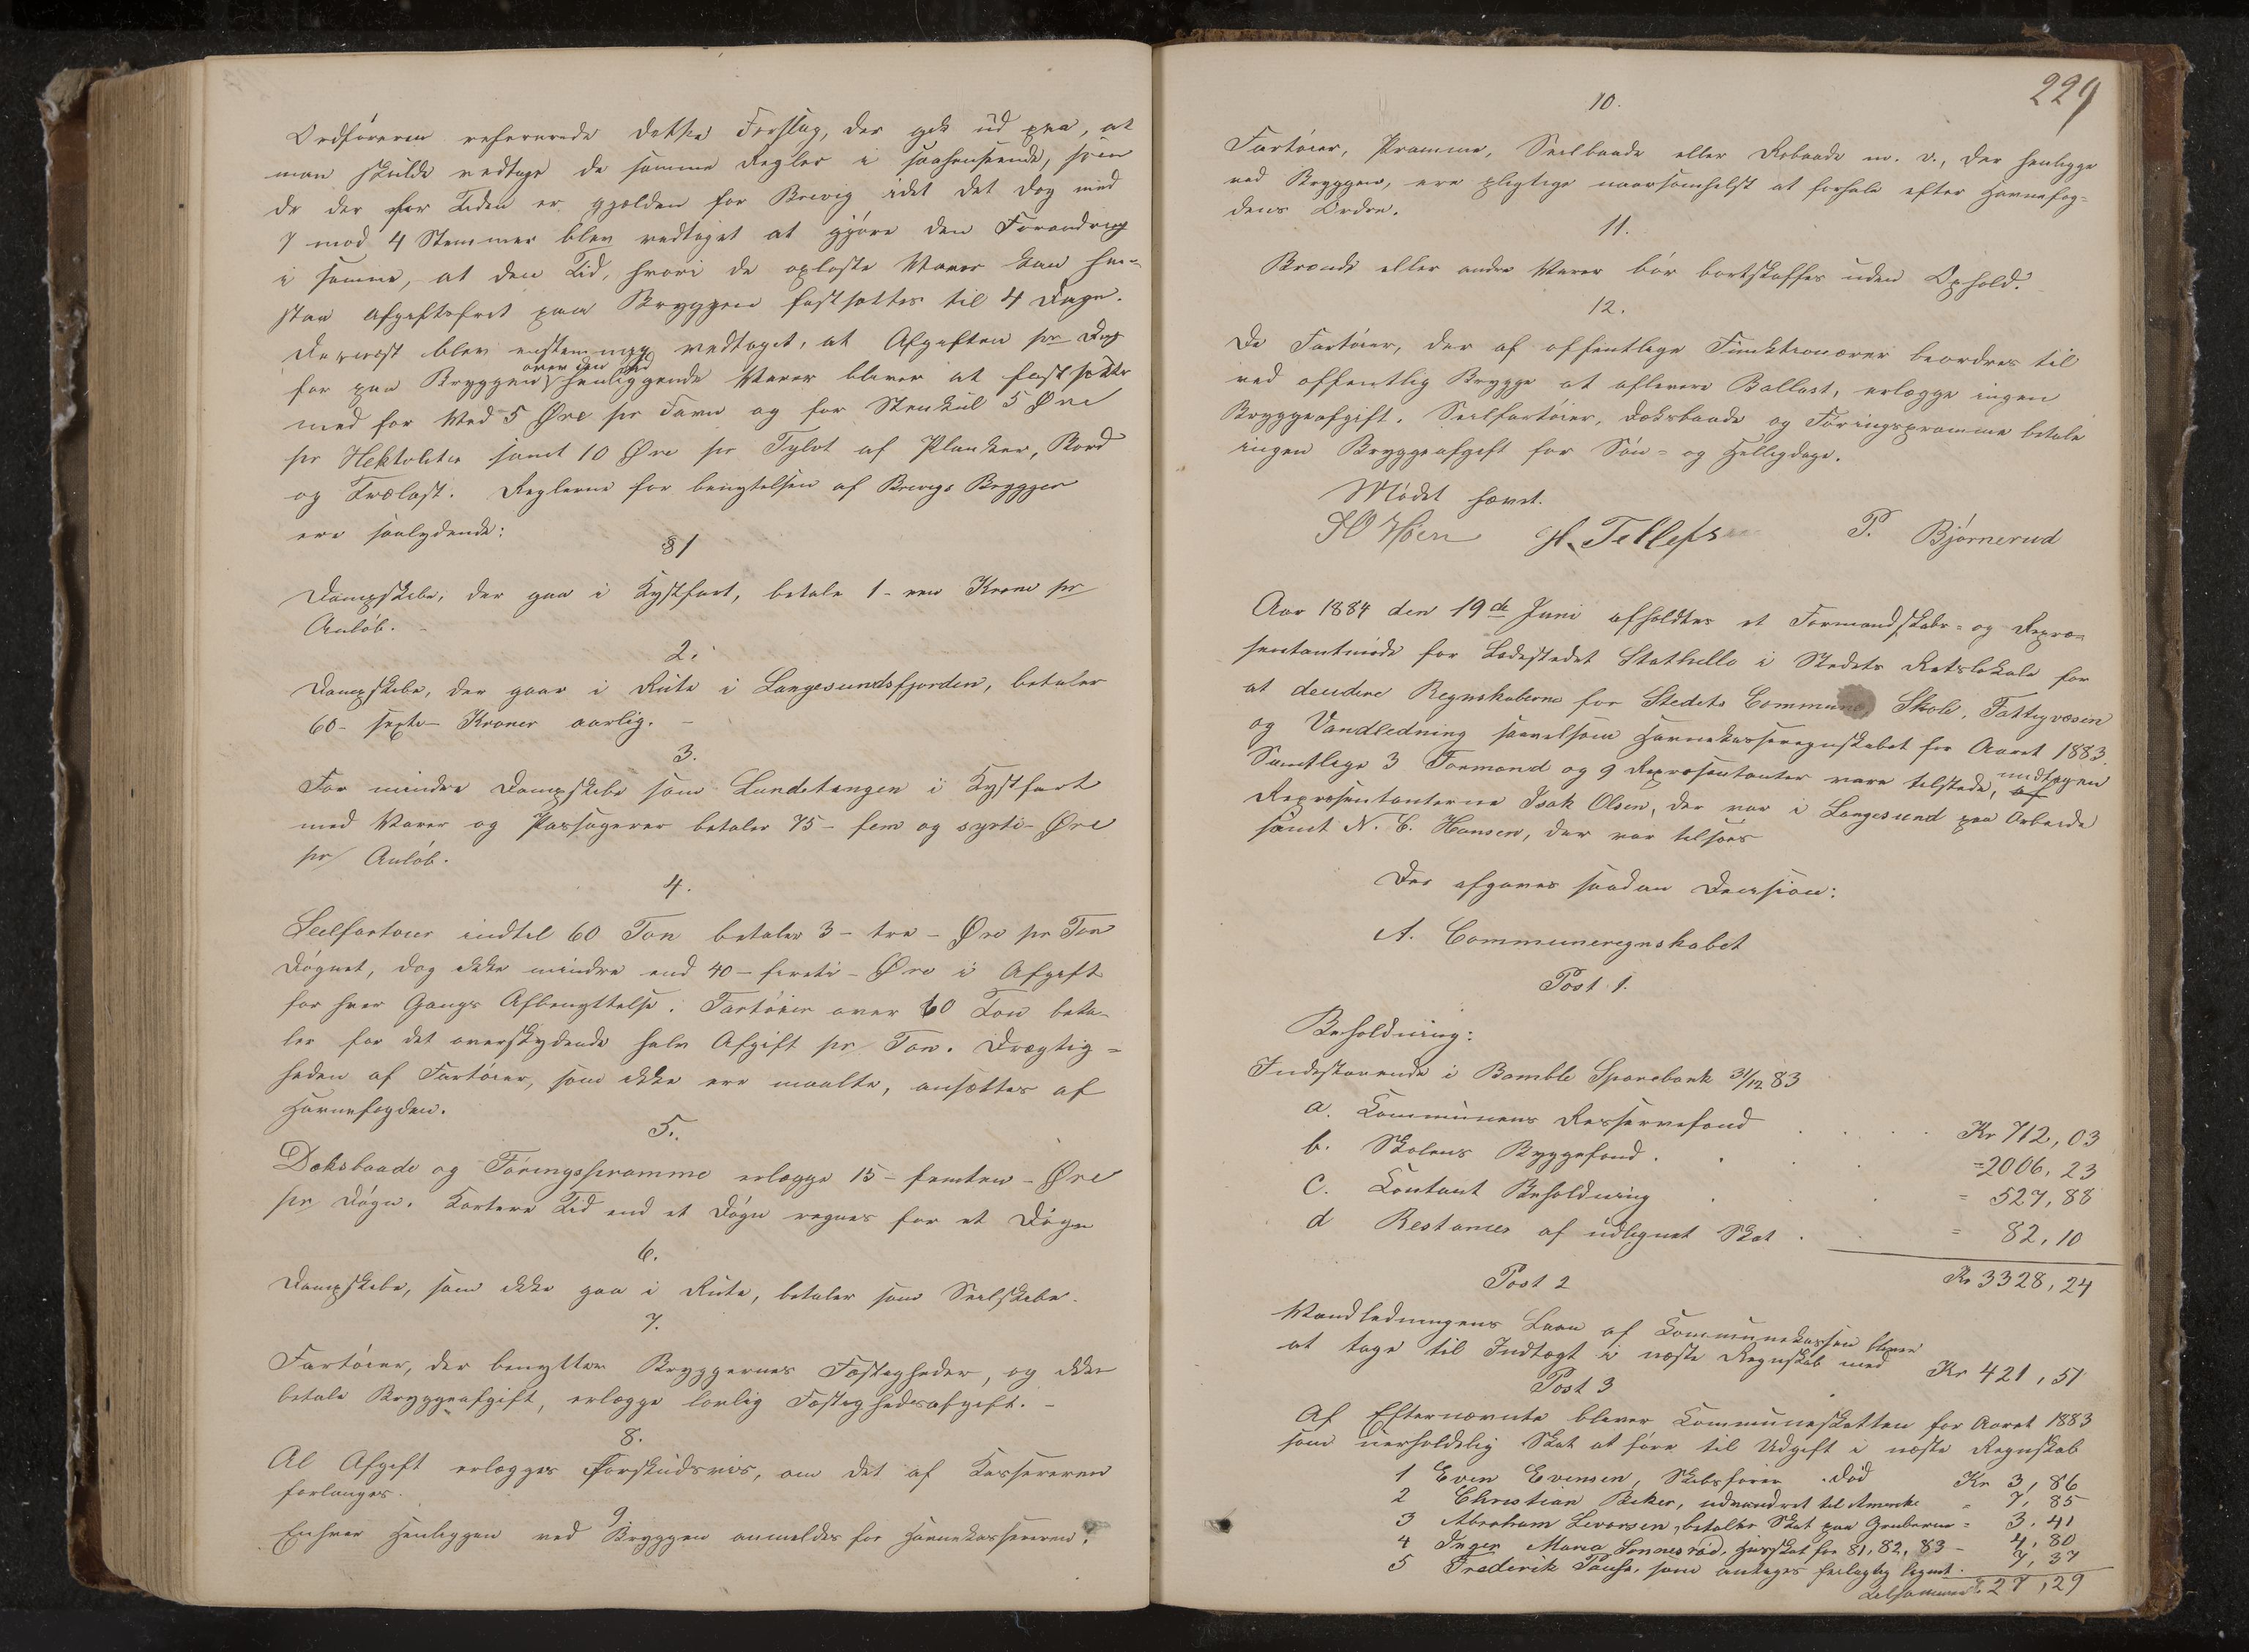 Ordføreren refererede dette Forslag, der gik ud paa, at
man skulde vedtage de samme Regler i saahenseende, som
de der for Tiden er gjælden for Brevig idet det dog med
7 mod 4 Stemmer blev vedtaget at gjøre den Forandring
i samme, at den Tid, hvori de oplagte Varer kan hen-
staa afgiftsfrit paa Bryggen fastsættes til 4 Dage.
Dernæst blev enstemmig vedtaget, at Afgiften pr Dag
over den Tid
for paa Bryggen henliggende Varer bliver at fastsætte
med for Ved 5 Øre pr Favn og for Stenkul 5 Øre
pr Hektoliter samt 10 Øre pr Tylvt af Planker, Bord
og Trælast. Reglerne for benyttelsen af Brevigs Brygger
ere saalydende:
§ 1
Dampskibe, der gaa i Kystfart, betale 1 - een Krone pr
Anløb. -
2.
Dampskibe, der gaar i Rute i Langesundsfjorden, betaler
60 - sexti - Kroner aarlig. -
3.
For mindre Dampskibe som Lundetangen i Kystfart
med Varer og Passagerer betaler 75 - fem og sytti - Øre
pr Anløb.
4.
Seilfartøier indtil 60 Ton betaler 3 - tre - Øre pr Ton
Døgnet, dog ikke mindre end 40 - fireti - Øre i Afgift
for hver Gangs Afbenyttelse. Fartøier over 60 Ton beta-
ler for det overskydende halv Afgift pr Ton. Drægtig-
heden af Fartøier, som ikke ere maalte, ansættes af
Havnefogden.
5.
Doksbaade og Føringspramme erlægge 15 - femten - Øre
pr Døgn. Kortere Tid end et Døgn regnes for et Døgn
6.
Dampskibe, som ikke gaa i Rute, betaler som Seilskibe.
7.
Fartøier, der benytter Bryggernes Fæstigheder, og ikke
betale Bryggeafgift, erlægge lovlig Fæstighedsafgift. -
8.
Al Afgift erlægges Forskudsvis, om det af Kassereren
forlanges.
9
Enhver Henliggen ved Bryggen anmeldes for Havnekassereren.
229
10.
Fartøier, Pramme, Seilbaade eller Robaade m. v., der henligge
ved Bryggen, ere pligtige naarsomhelst at forhale efter Havnefog-
dens Ordre.
11.
Brænde eller andre Varer bør bortskaffes uden Ophold.
12.
De Fartøier, der af offentlige Funktionærer beordres til
ved offentlig Brygge at aflevere Ballast, erlægge ingen
Bryggeafgift. Seilfartøier, Doksbaade og Føringspramme betale
ingen Bryggeafgift for Søn- og Helligdage.
Mødet hævet.
H. Tellefsen P. Bjørnerud
Aar 1884 den 19de Juni afholdtes et Formandskabs- og Repræ-
sentantmøde for Ladestedet Stathelle i Stedets Retslokale for
at decidere Regnskaberne for Stedets Commune, Skole, Fattigvæsen
og Vandledning saavelsom Havnekasseregnskabet for Aaret 1883.
Samtlige 3 Formænd og 9 Repræsentanter vare tilstede, undtagen
Repræsentanterne Isak Olsen, der var i Langesund paa Arbeide
samt N. C. Hansen, der var tilsøes
Der afgaves saadan Decision:
A. Communeregnskabet
Post 1.
Beholdning:
Indestaaende i Bamble Sparebank 31/12 83
a. Communens Reservefond . . . . Kr 712,03
b. Skolens Byggefond . . . . = 2006,23
c. Contant Beholdning . . . = 527,88
d Restancer af udlignet Skat . . = 82,10
Kr 3328,24
Post 2
Vandledningens Laan af Communekassen bliver
at tage til Indtægt i næste Regnskab med Kr 421,51
Post 3
Af Efternævnte bliver Communeskatten for Aaret 1883
som uerholdelig Skat at føre til Udgift i næste Regnskab
1 Even Evensen, Skibsfører, død Kr 3,86
2 Christian Beker, udvandret til Amerika = 7,85
3 Abraham Levorsen, betalte Skat paa Gruberne = 3,41
4 Inger Maria Sønnesrød, Husskat for 81, 82, 83 - 4,80
5 Frederik Pause, som antages feilagtig lignet. 7,37
Tilsammen Kr 27,29